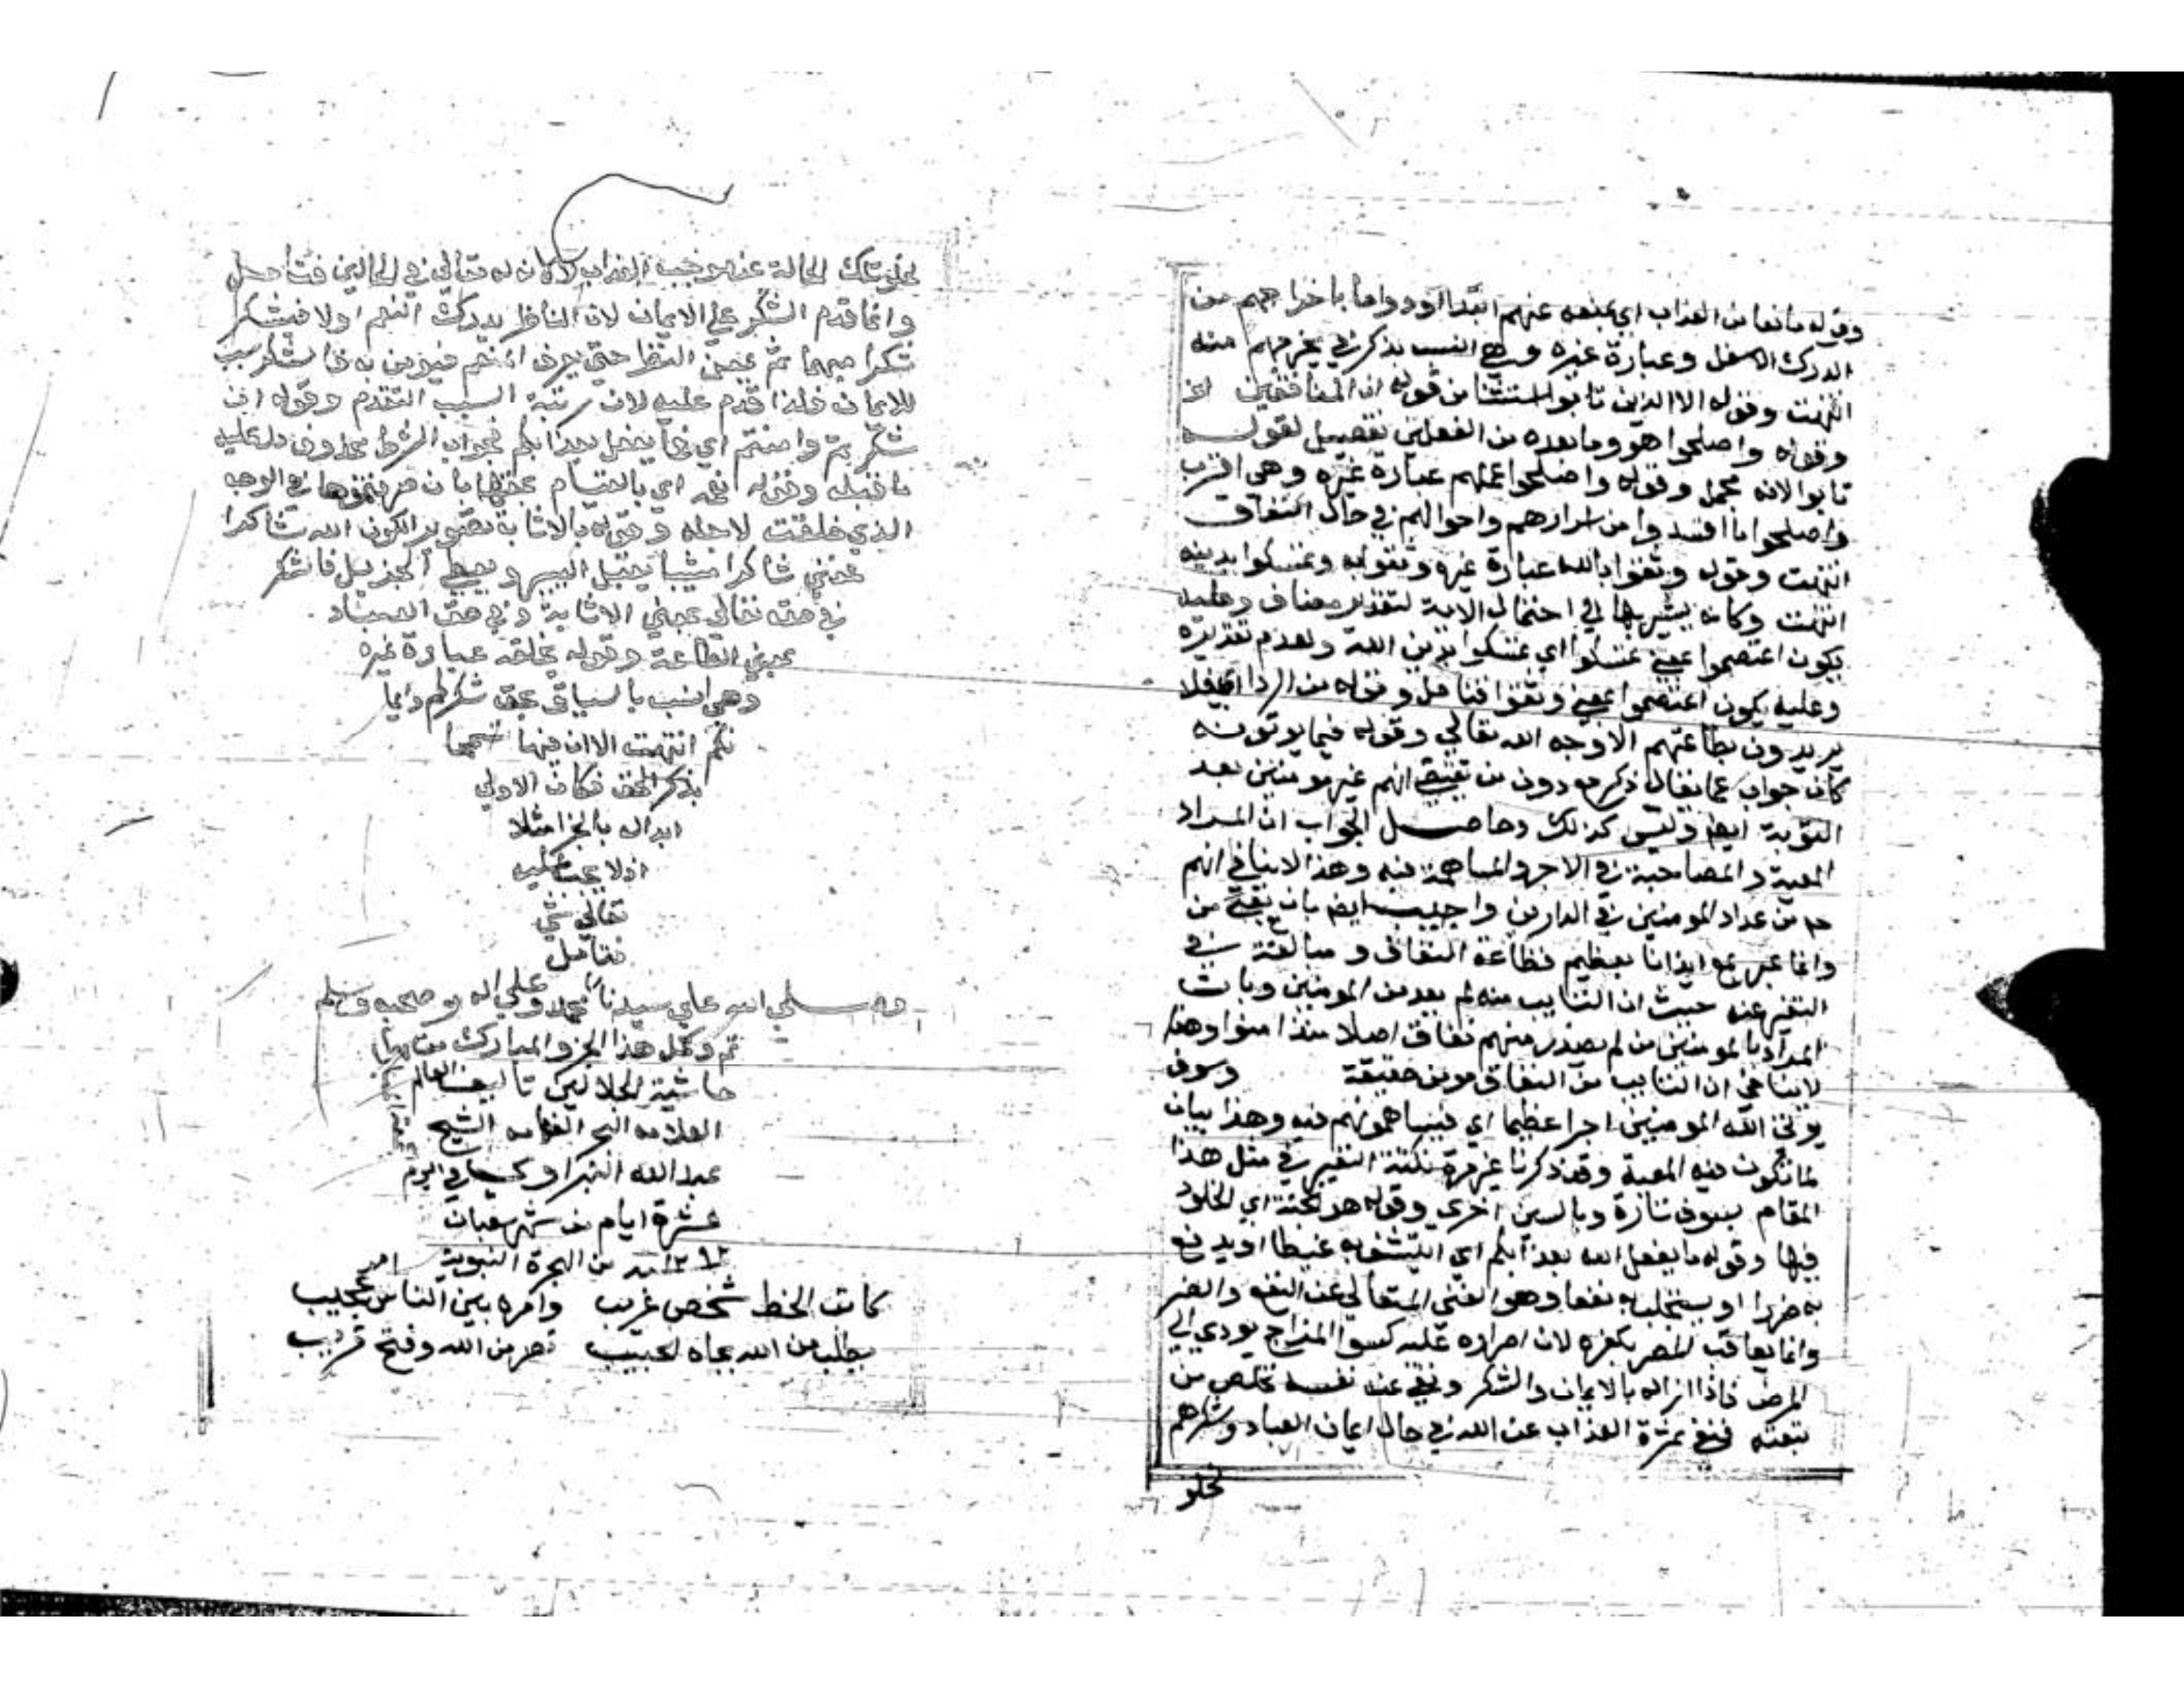 وقوله مانعا من العذاب اي يمنعه عنهم ابتداا ودواما باخراجهم من
الدرك الاسفل وعبارة غيره وهي انسب بذكر في يخرجهم منه
انتهت وقوله الا الذين تابوا استثنا من قوله ان المنافقين الخ
وقوله واصلحوا هو وما بعده من الفعلين تفصيل لقوله
تابوا لانه مجمل وقوله واصلحوا عملهم عبارة غيره وهي اقرب
واصلحوا ما افسدوا من اسرارهم واحوالهم في حال النفاق
انتهت وقوله وثقوا بالله عبارة غيره وثقوا به وتمسكوا بدينه
انتهت وكانه يشير بها الي احتمال الاية لتقدير مضاف وعليه
يكون اعتصموا بمعني تمسكوا اي تمسكوا بدين الله ولعدم تقديره
وعليه يكون اعتصموا بمعني وثقوا فتامل وقوله من الريا اي فلا
يريدون بطاعتهم الا وجه الله تعالي وقوله فيما يوتونه
كان جواب عما يقال ذكر مع دون من يقتضي انهم غير مومنين بعد
التوبة ايضا وليس كذلك وحاصل الجواب ان المراد
المعية والمصاحبة في الاجر والمساهمة فيه وهذا لاينافي انهم
من عداد المومنين في الدارين واجيب ايضا بان مع بمعني من
وانما عبر بمع ايذانا بعظيم فظاعة النفاق ومبالغة في
التنفير عنه حيث ان التايب منه لم يعد من المومنين وبان
المراد بالمومنين من لم يصدر منهم نفاق اصلا منذ امنوا وهذا
لاينافي ان التايب من النفاق مومن حقيقة وسوف
يوتي الله المومنين اجرا عظيما اي فيساهمونهم فيه وهذا بيان
لما تكون فيه المعية وقد ذكرنا غير مرة نكتة التعبير في مثل هذا
المقام بسوف تارة وبالسين اخري وقوله هو الجنة اي الخلود
فيها وقوله ما يفعل الله بعذابكم اي ايتشفي به غيظا او يدفع
به ضررا او يستجلب به نفعا وهو الغني المتعالي عن النفع والضر
وانما يعاقب المصر بكفره لان اصراره عليه كسوا المزاج يودي الي
المرض فاذا ازاله بالايمان والشكر ونفي عنه نفسه تخلص من
تبعته فنفي ثمرة العذاب عن الله في حال ايمان العباد وشكرهم
تخلو
تخلو تلك الحالة عن موجب العذاب تعالي في الحالين فتامل
وانما قدم الشكر علي الايمان لان الناظر يدرك النعم اولا فيشكر
شكرا مبهما ثم يمعن النظر حتي يعرف المنعم فيومن به فالشكر سبب
للايمان فلذا قدم عليه لان رتبة السبب التقدم وقوله ان
شكرتم وامنتم اي فما يفعل بعذابكم فجواب الشرط محذوف دل عليه
ما قبله وقوله نعمه اي بالقيام بحقها بان صرفتموها في الوجه
الذي خلقت لاجله وقوله بالاثابة تصوير لكون الله شاكرا
فمعني شاكرا مثيبا يقبل اليسير ويعطي الجزيل فالشكر
في حقه تعالي بمعني الاثابة وفي حق العباد
بمعني الطاعة وقوله بخلقه عبارة غيره
وهي انسب بالسياق بحق شكركم وايما
نكم انتهت الا ان فيها تسمحا
بذكر الحق فكان الاولي
ابداله بالجزا مثلا
اذ لا يجب عليه
تعالي شي
فتامل
وصلي الله علي سيدنا محمد وعلي اله وصحبه وسلم
تم وكمل هذا الجزو المبارك
حاشية الجلالين تاليف العالم
العلامه البحر الفهامه الشيخ
عبد الله النبراوي
عشرة ايام من شهر شعبان
من الهجرة النبوية
كاتب الخط شخص غريب وامره بين الناس امر عجيب
يطلب من الله بجاه الحبيب نصر من الله وفتح قريب